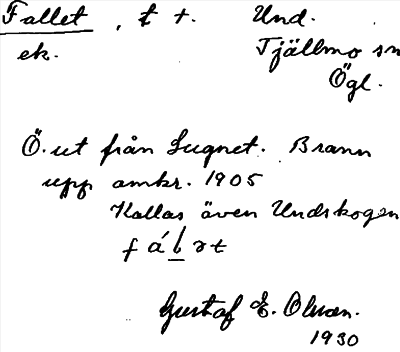 Fallet, t +. Und.
ek. Tjällmo sn
Ögl.
Ö. ut från Lugnet. Brann
upp omkr. 1905
Kallas även Undskogen
Gustaf E. Olson.
1930